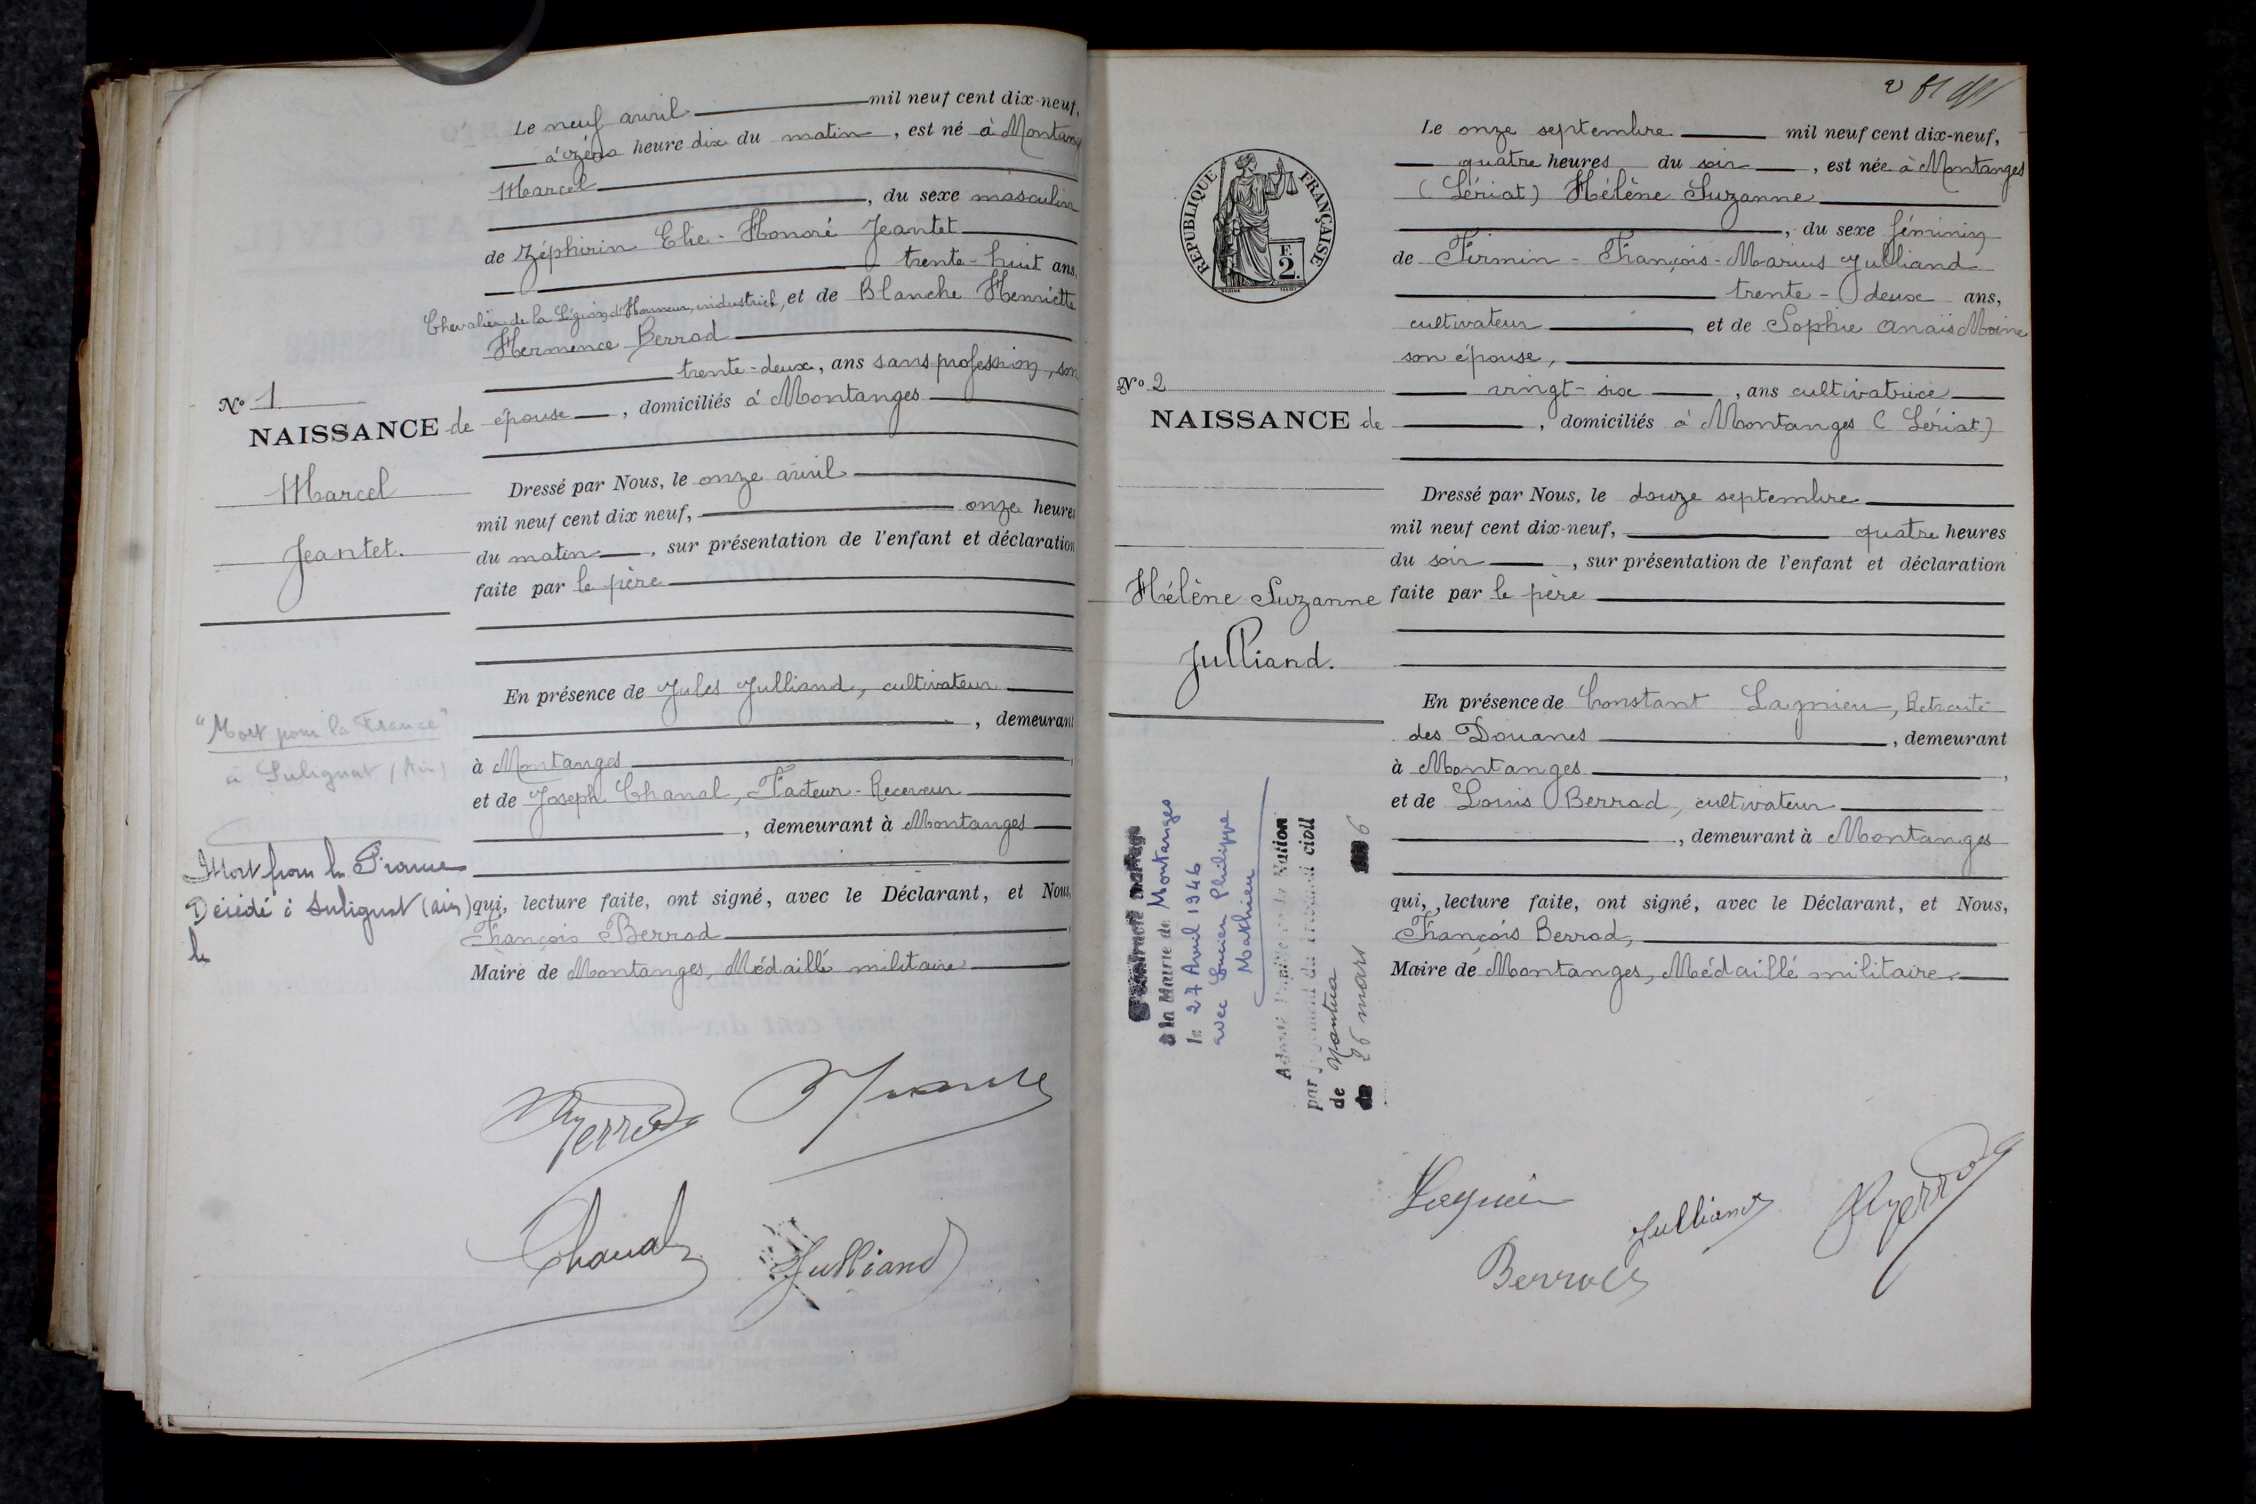 Le neuf avril mil neuf cent dix-neuf,
à zéro heure dix du matin, est né à Montanges
Marcel
, du sexe masculin
de Zéphirin Elie-Honoré Jeantet
trente-huit ans,
Chevalier de la Légion d'Honneur, industriel, et de Blanche Henriette
Hermence Berrod
trente-deux, ans sans profession, son
épouse, domiciliés à Montanges
No 1
NAISSANCE de
Marcel
Jeantet.
Dressé par Nous, le onze avril
mil neuf cent dix neuf, onze heures
du matin, sur présentation de l'enfant et déclaration
faite par le père
En présence de Jules Julliand, cultivateur
, demeurant
à Montanges
et de Joseph Chanal, Facteur-Receveur
, demeurant à Montanges
qui, lecture faite, ont signé, avec le Déclarant, et Nous,
François Berrod
Maire de Montanges, Médaillé militaire
"Mort pour la France"
à Sulignat (Ain)
Mort pour la France
Décédé à Sulignat (Ain)
le
Berrod
Chanal
Julliand
2
RÉPUBLIQUE FRANÇAISE
F.
2.
Le onze septembre mil neuf cent dix-neuf,
quatre heures du soir, est née à Montanges
(Lériat) Hélène Suzanne
, du sexe féminin
de Firmin-François-Marius Julliand
trente-deux ans,
cultivateur, et de Sophie Anaïs Moine
son épouse,
vingt-six, ans cultivatrice
, domiciliés à Montanges (Lériat)
No 2
NAISSANCE de
Hélène Suzanne
Julliand.
Dressé par Nous, le douze septembre
mil neuf cent dix-neuf, quatre heures
du soir, sur présentation de l'enfant et déclaration
faite par le père
En présence de Constant Lagnieu, Retraité
des Douanes, demeurant
à Montanges,
et de Louis Berrod, cultivateur
, demeurant à Montanges
qui, lecture faite, ont signé, avec le Déclarant, et Nous,
François Berrod,
Maire de Montanges, Médaillé militaire.
a contracté mariage
à la Mairie de Montanges
le 27 Avril 1946
avec Lucien Philippe
Mathieu
Adoptée Pupille de la Nation
par jugement du tribunal civil
de Nantua
26 mars
Lagnieu
Julliand
Berrod
Berrod